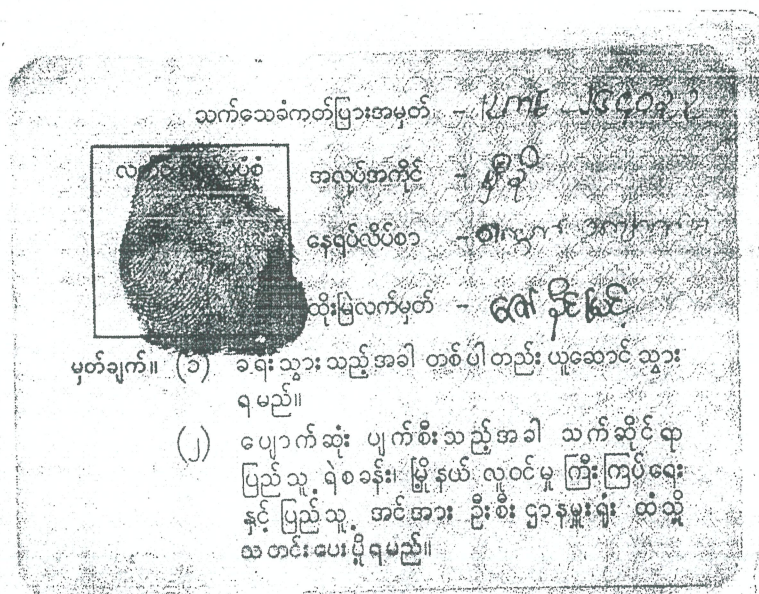 သက်သေခံကတ်ပြားအမှတ် -
အလုပ်အကိုင် -
နေရပ်လိပ်စာ -
ထိုးမြဲလက်မှတ် - ဇော်နိုင်မြင့်
မှတ်ချက်။ (၁) ခရီးသွားသည့်အခါ တစ်ပါတည်း ယူဆောင်သွား
ရမည်။
(၂) ပျောက်ဆုံး ပျက်စီးသည့်အခါ သက်ဆိုင်ရာ
ပြည်သူ့ ရဲစခန်း၊ မြို့နယ် လူဝင်မှု ကြီးကြပ်ရေး
နှင့် ပြည်သူ့ အင်အား ဦးစီး ဌာနမှူးရုံး ထံသို့
သတင်းပေးပို့ရမည်။